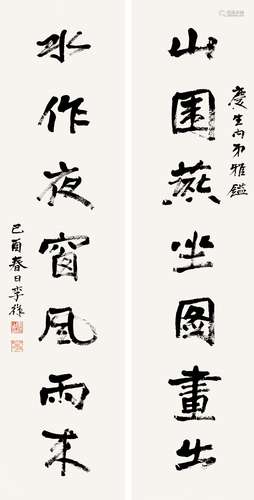 慶生內弟雅鑑
山圍燕坐圖畫出
水作夜窗風雨來
己酉春日李猷